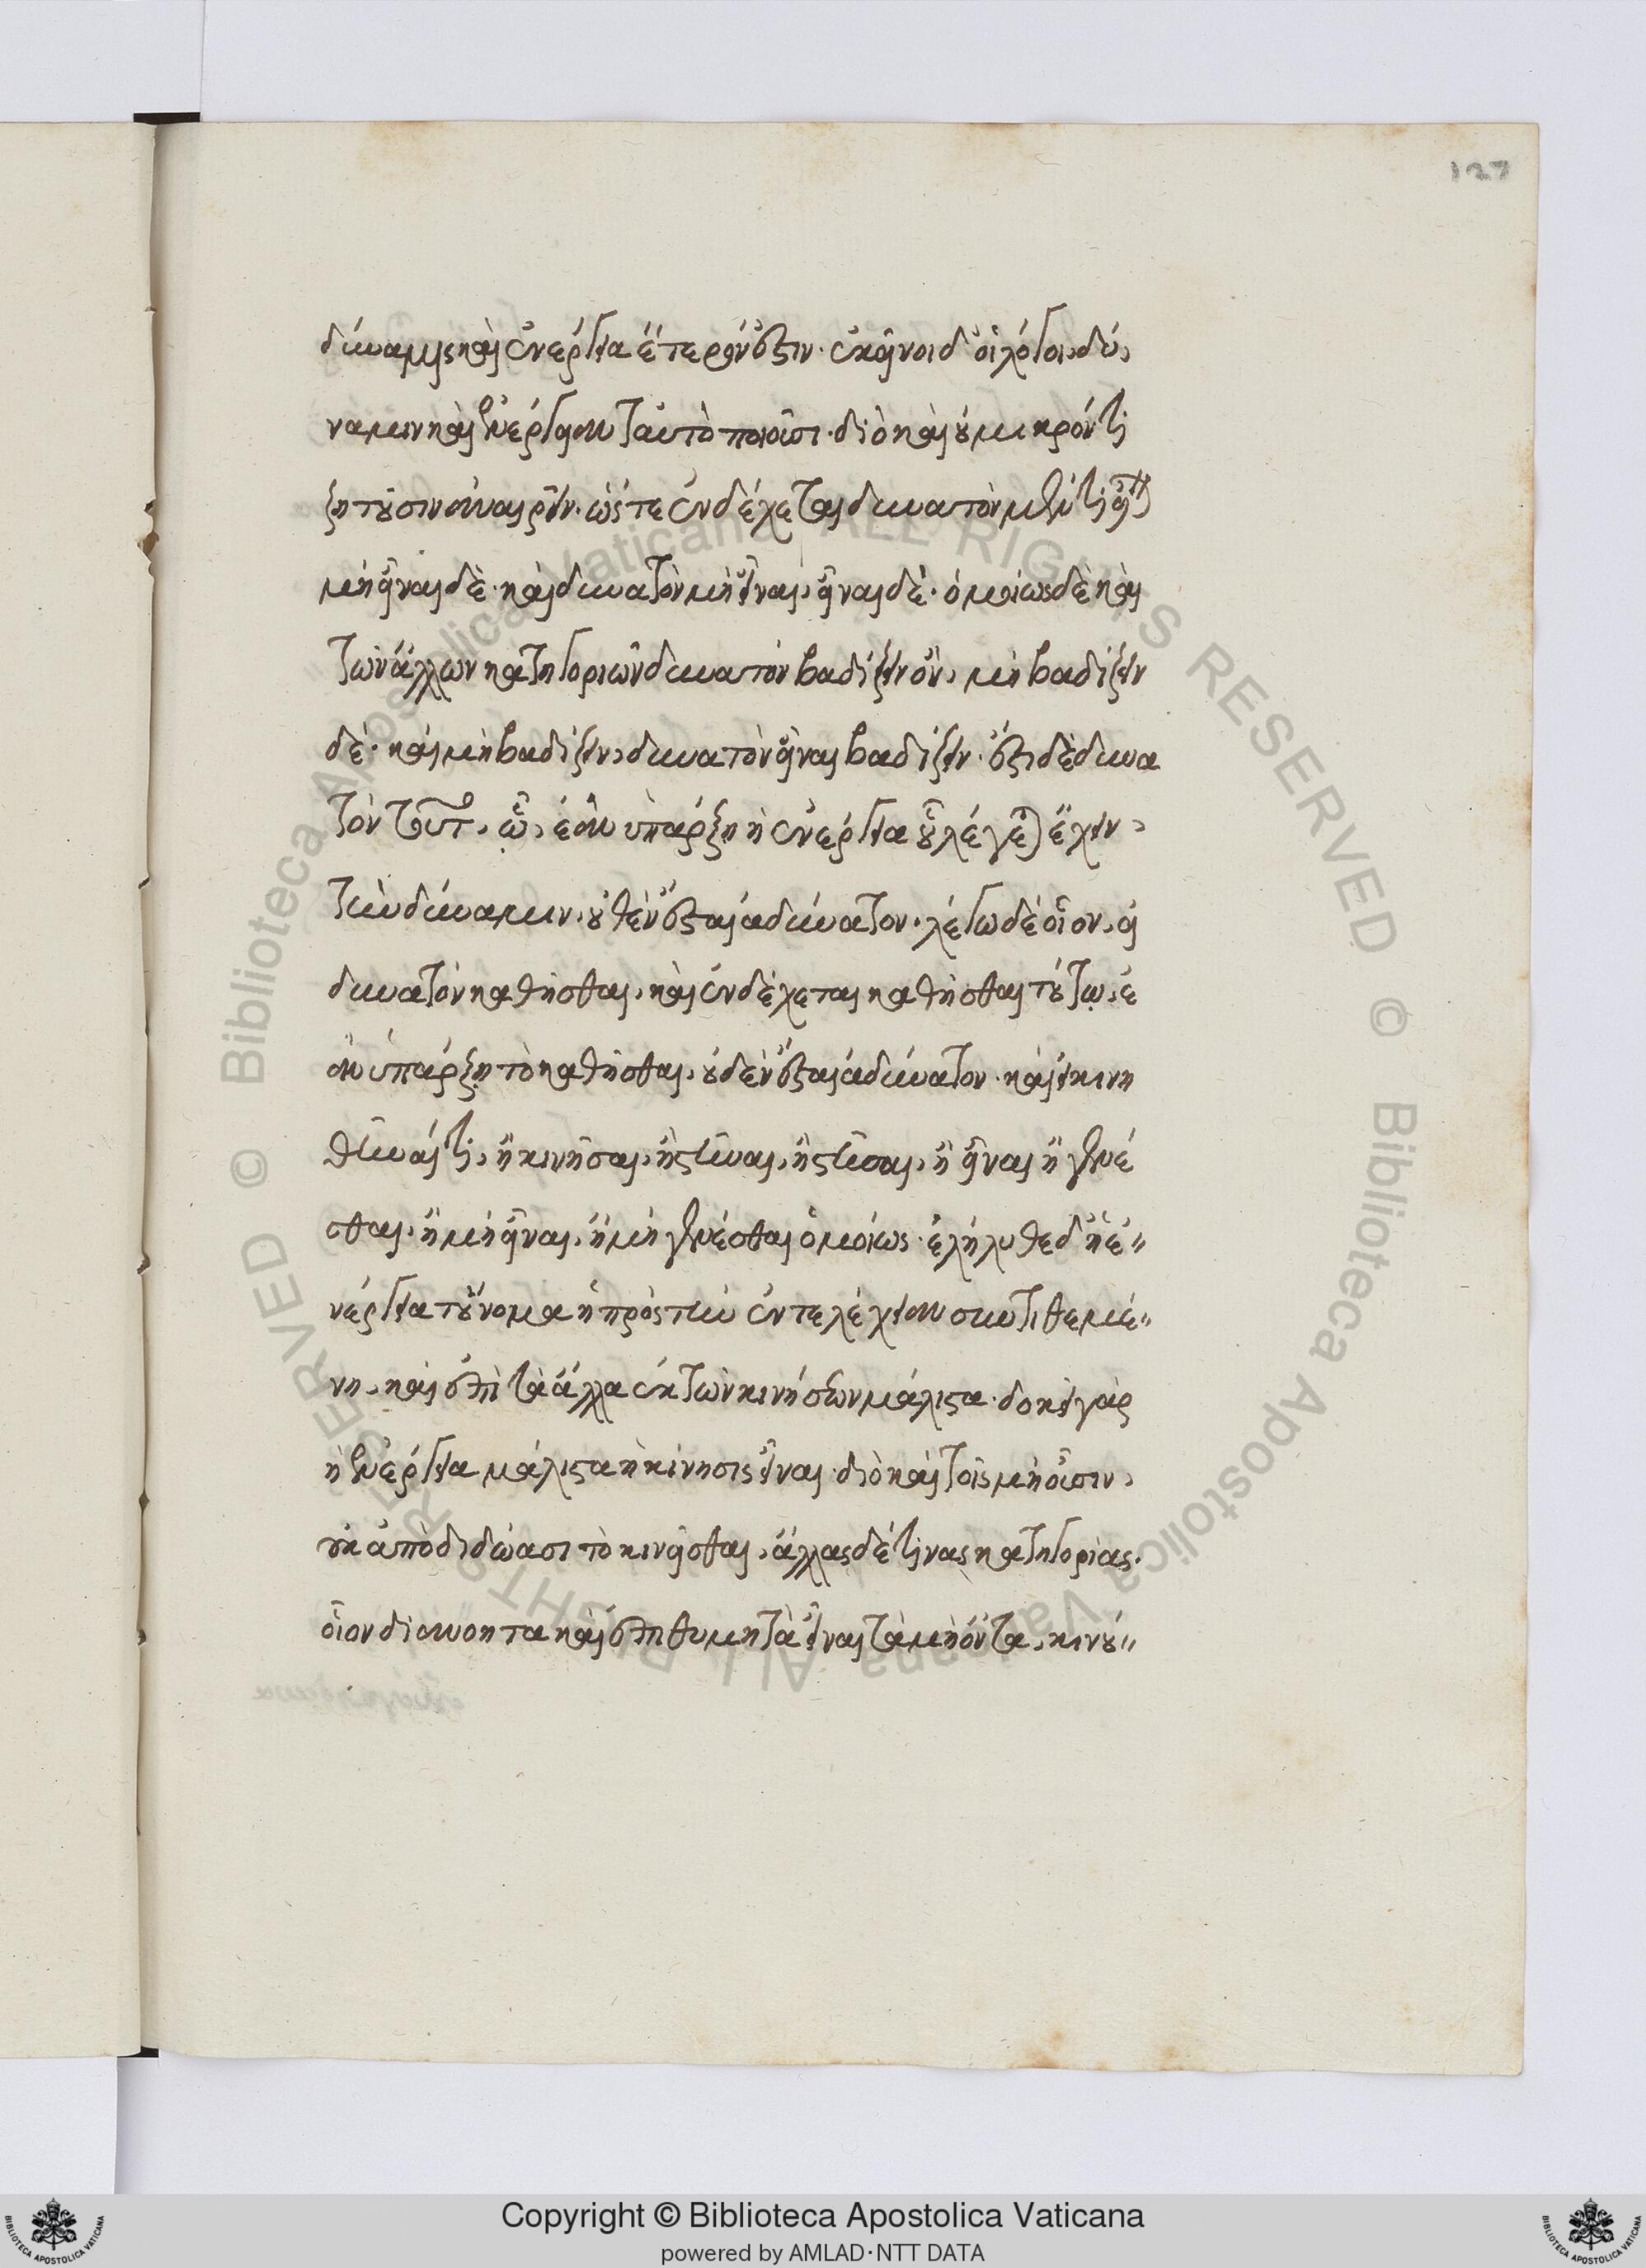 127
δύναμις καὶ ἐνέργεια ἕτερόν ἐστιν· ἐκεῖνοι δ' οἱ λόγοι, δύ,
ναμιν καὶ ἐνέργειαν ταὐτὸ ποιοῦσι· διὸ καὶ οὐ μικρόν τι
ζητοῦσιν ἀναιρεῖν· ὥςτε ἐνδέχεται δυνατὸν μέν τι εἶναι
μὴ εἶναι δὲ· καὶ δυνατὸν μὴ εἶναι, εἶναι δέ· ὁμοίως δὲ καὶ
τῶν ἄλλων κατηγοριῶν δυνατὸν βαδίζειν ὂν, μὴ βαδίζειν
δέ· καὶ μὴ βαδίζειν, δυνατὸν εἶναι βαδίζειν· ἔστι δὲ δυνα
τὸν τοῦτο, ᾧ, ἐὰν ὑπάρξη ἡ ἐνέργεια οὗ λέγεται ἔχειν,
τὴν δύναμιν, οὐθὲν ἔσται ἀδύνατον· λέγω δὲ οἷον, εἰ
δυνατὸν καθῆσθαι, καὶ ἐνδέχεται καθῆσθαι τούτῳ, ἐ
ὰν ὑπάρξῃ τὸ καθῆσθαι, οὐδὲν ἔσται ἀδύνατον· καὶ εἰ κινη
θῆναί τι, ἢ κινῆσαι, ἢ στῆναι, ἢ στῆσαι, ἢ εἶναι ἢ γενέ
σθαι, ἢ μὴ εἶναι, ἢ μὴ γενέσθαι ὁμοίως· ἐλήλυθε δ' ἡ ἐ"
νέργεια τοὔνομα ἡ πρὸς τὴν ἐντελέχειαν συντιθεμέ"
νη, καὶ ἐπὶ τὰ ἄλλα ἐκ τῶν κινήσεων μάλιστα· δοκεῖ γὰρ
ἡ ἐνέργεια μάλιστα ἡ κίνησις εἶναι· διὸ καὶ τοῖς μὴ οὖσιν,
οὐκ ἀποδιδόασι τὸ κινεῖσθαι, ἄλλας δέ τινας κατηγορίας·
οἷον διανοητὰ καὶ ἐπιθυμητὰ εἶναι τὰ μὴ ὄντα, κινού"
Copyright © Biblioteca Apostolica Vaticana
powered by AMLAD·NTT DATA